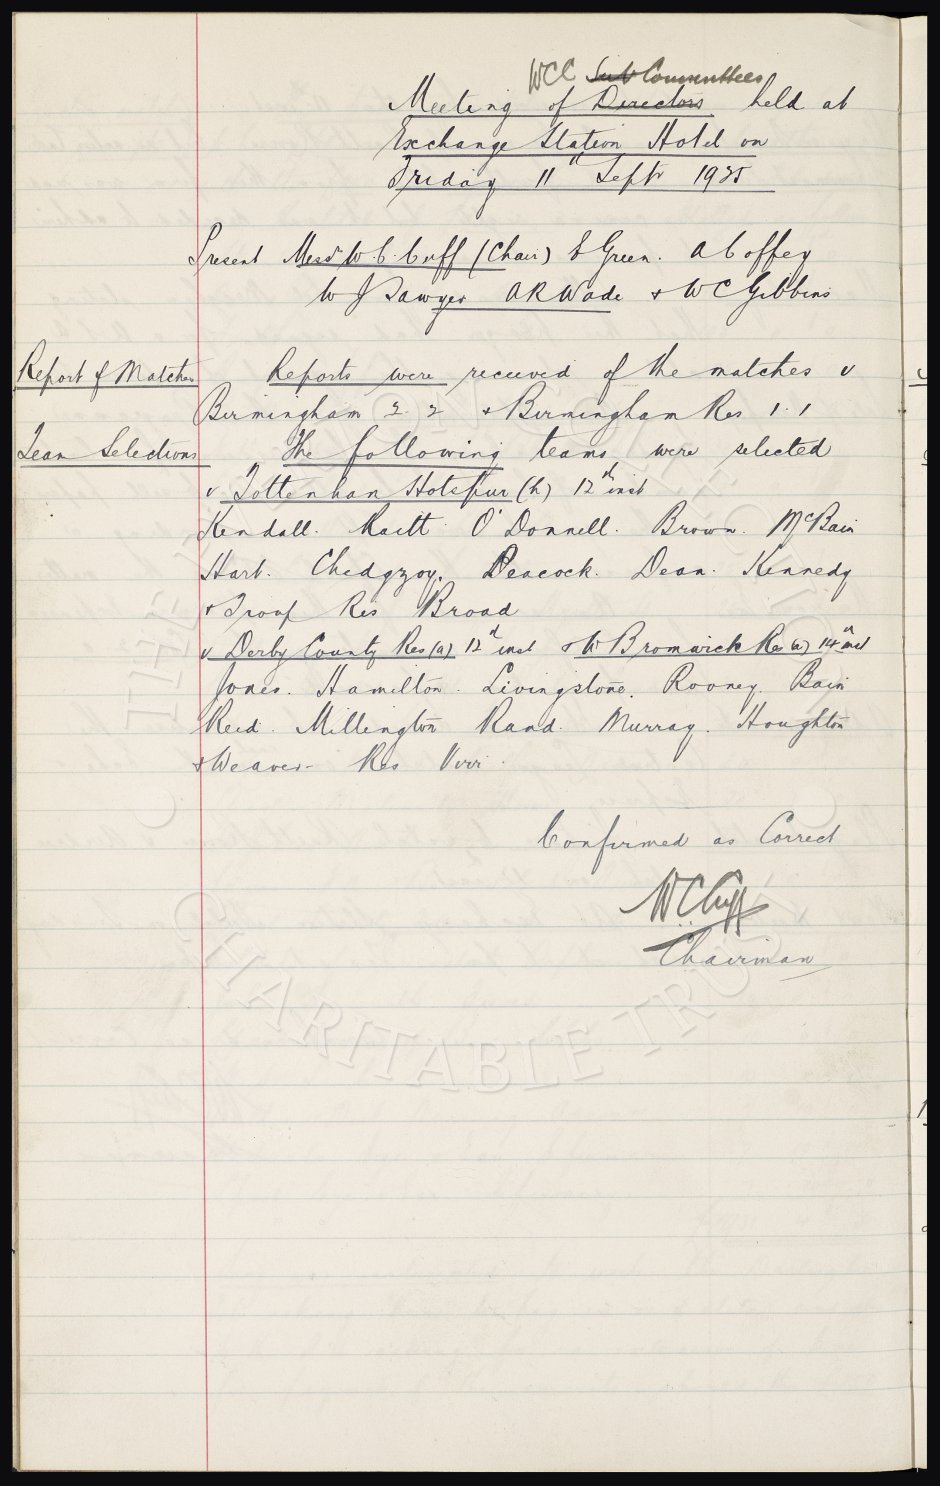 WCC Sub Committees
Meeting of Directors held at
Exchange Station Hotel on
Friday 11" Septr 1925
Present Messrs W.C. Cuff (Chair) E Green. A Coffey
W J Sawyer A R Wade & W C Gibbins
Report of Matches
Reports were received of the matches v
Birmingham 2 2 & Birmingham Res 1. 1
Team Selections
The following teams were selected
v Tottenham Hotspur (h) 12th inst
Kendall. Raitt O'Donnell. Brown. McBain
Hart. Chedgzoy. Peacock. Dean. Kennedy
& Troup Res Broad
v Derby County Res (a) 12th inst & W Bromwich Res (a) 14th inst
Jones. Hamilton. Livingstone. Rooney. Bain
Reid. Millington Rand. Murray. Houghton
& Weaver - Res Virr.
Confirmed as Correct
W.C. Cuff
Chairman
CHARITABLE TRUST